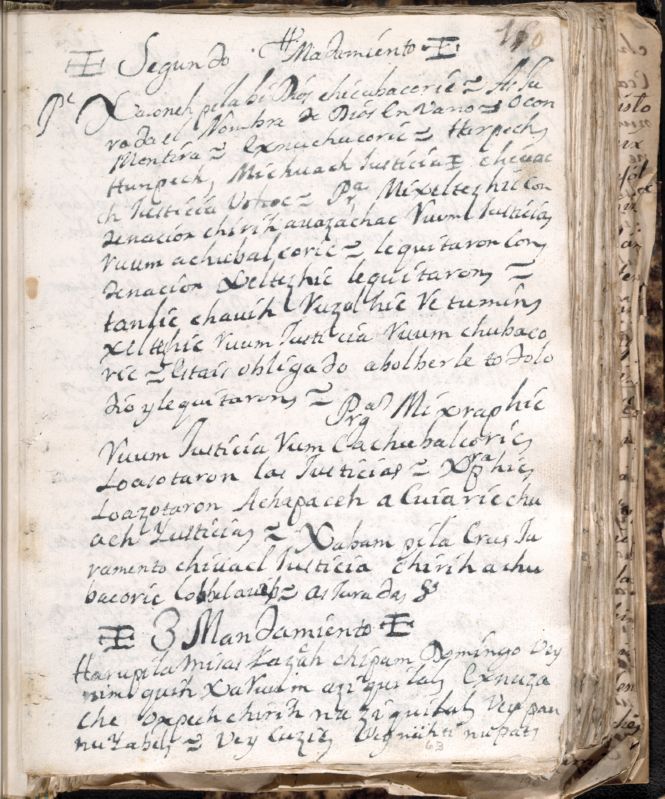 160
Segundo Madamiento
Pe Xaoneh pela bi Dios chicubacoric = As Ju
rado el Nombre de Dios En Vano = O con
Mentira = Exnuchucoric = Harpech,
Hunpech, Michuach Justicia chiuac
h Justicia Vohoc = Pra Mixeltezhic con
denacion chirih auazachac Vuum Justicia,
Vuum achubalcoric = le quitaron Con,
denacion Xeltezhic le quitaron, =
tanlic chauih Vuzolhic Ve tumin,
Xeltezhic Vuum Justicia Vuum chubaco
ric = Estais obligado abolberle todo lo
dio y le quitaron, =
Prga Mixraphic
Vuum Justicia Vum Cachubalcoric,
Loasotaron las Justicias = Xraphic,
Loazotaron Achapaceh a Cuiaric chu
ach Justicia, = Xabam pila Crus Ju
ramento chiuach Justicia chirih achu
bacoric = as Jurado,
3 Mandamiento
Harupila Misas chipam Domingo Vey
nim quih XaVuim aziquilal Exnuza
che Oxpech chirih nu ziquital, Vey pan
nuYabel, = Vey Cuzic, Vey nupats
63